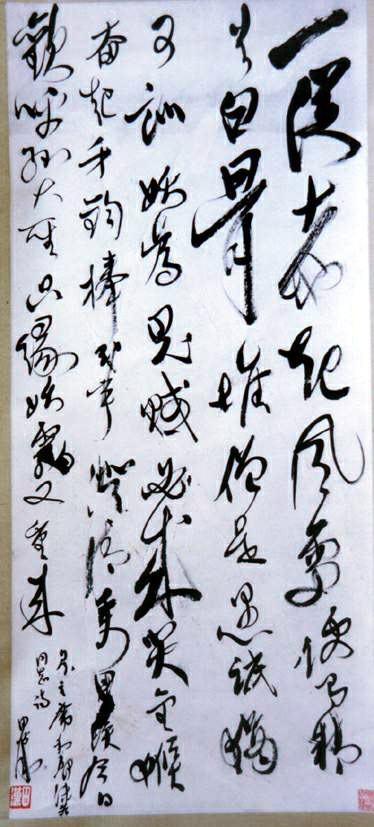 一從大地起风雷便有精
生白骨堆僧是愚氓猶
可訓妖為鬼蜮必成災金猴
奮起千鈞棒玉宇澄清萬里埃今日
歡呼孫大聖只緣妖霧又重來
主席和郭沫若
同志詩